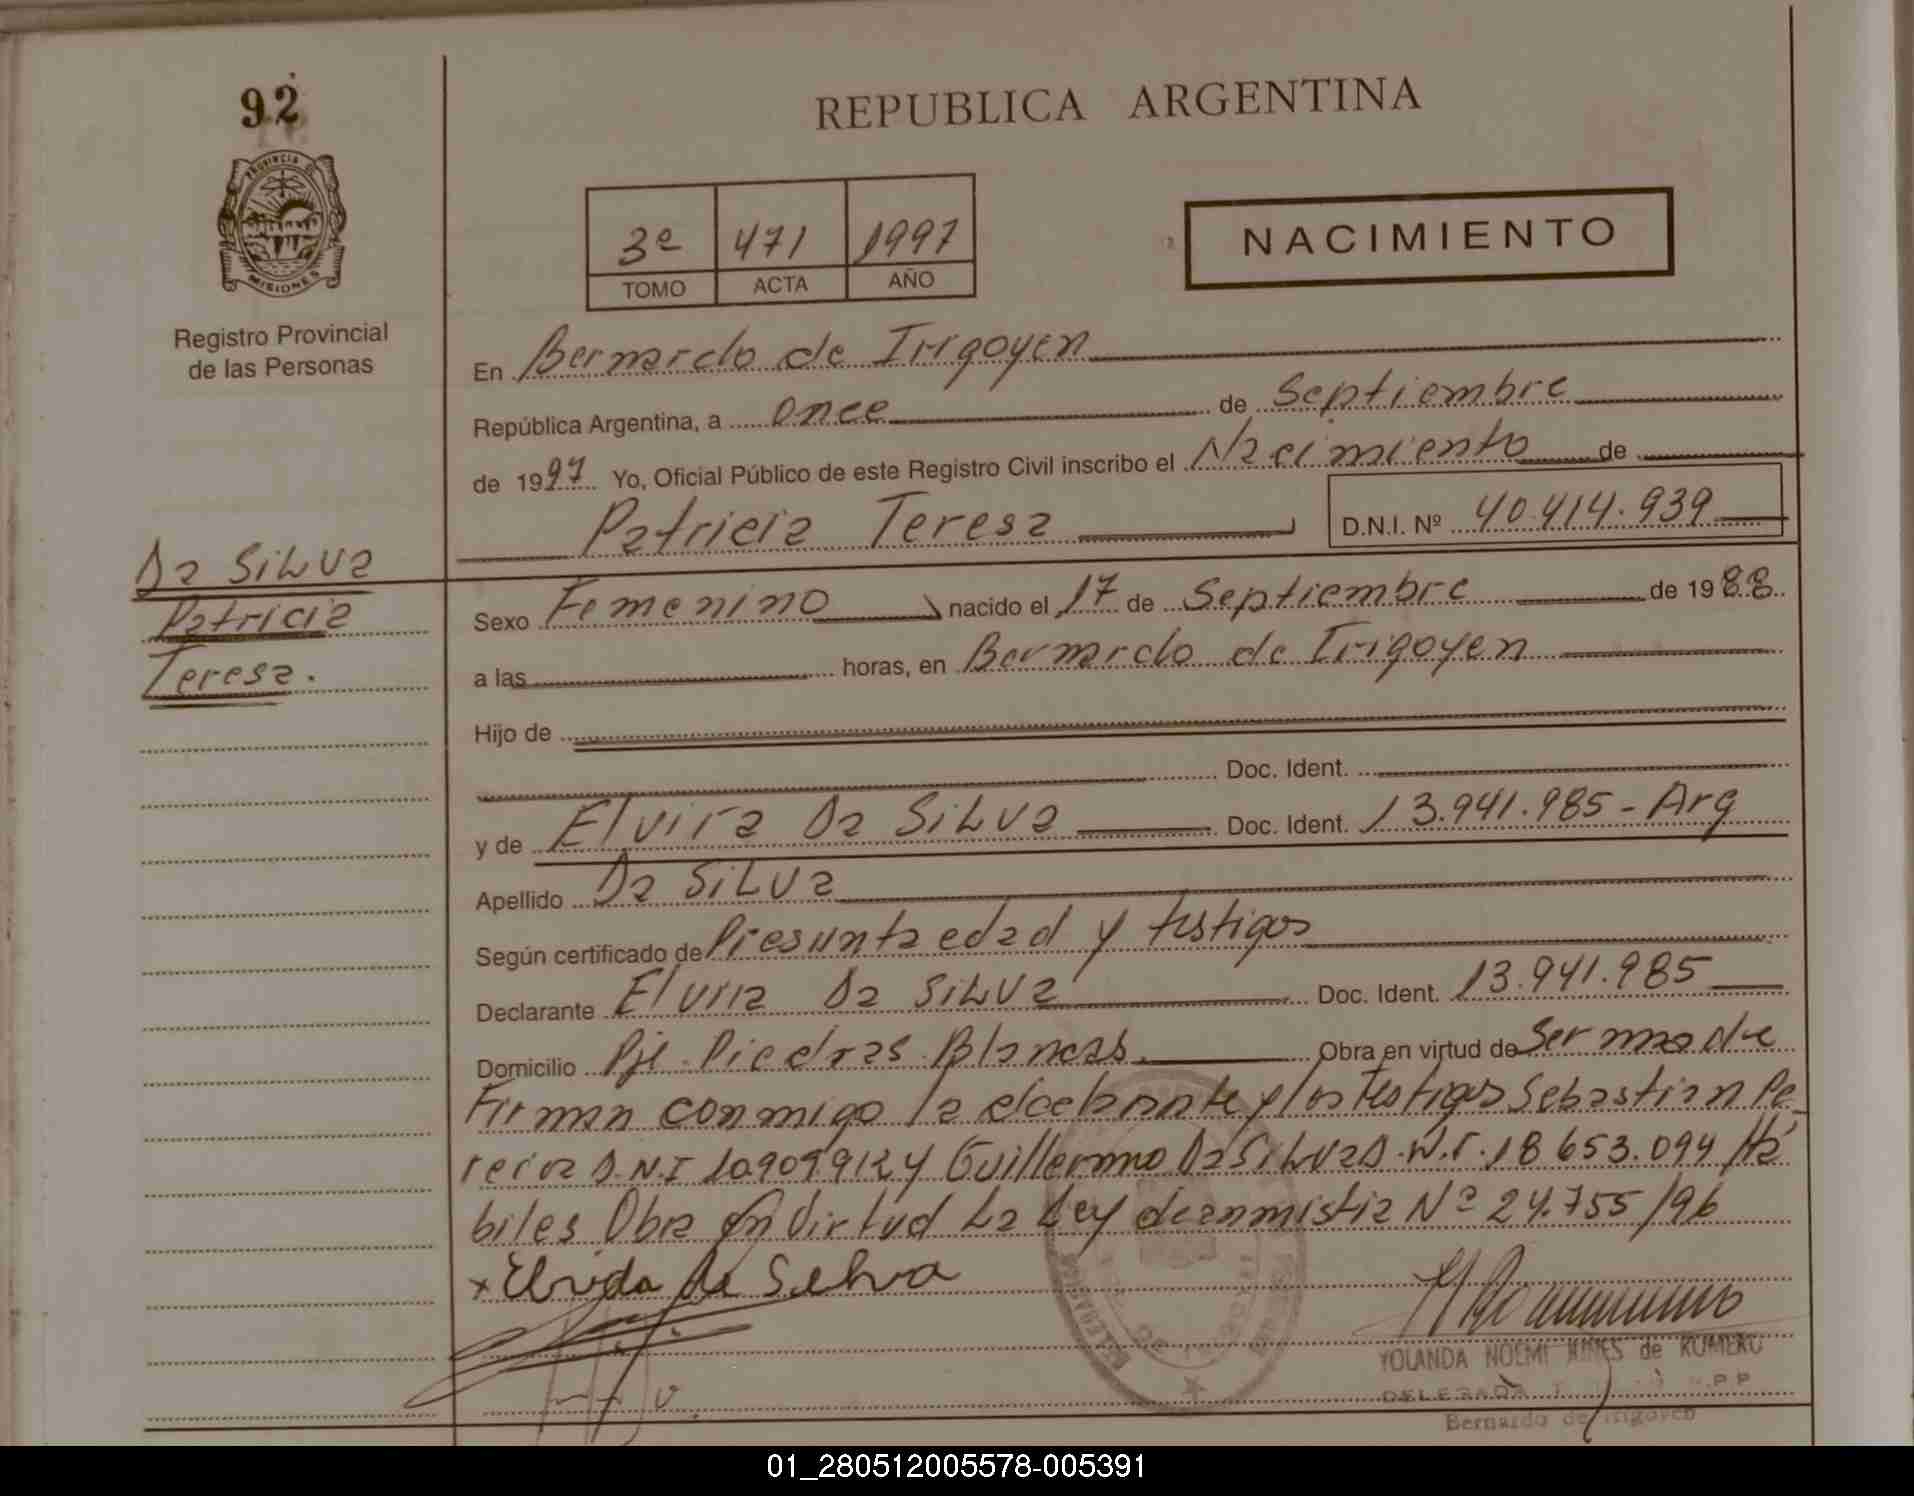 92
REPUBLICA ARGENTINA
PROVINCIA D
MISIONES
Registro Provincial
de las Personas
3º 471 1997
TOMO ACTA AÑO
NACIMIENTO
En Bernardo de Irigoyen
República Argentina, a once de Septiembre
de 1997 Yo, Oficial Público de este Registro Civil inscribo el Nacimiento de
Patricia Teresa D.N.I. Nº 40.414.939
Da Silva
Patricia
Teresa.
Sexo Femenino nacido el 17 de Septiembre de 1988
a las horas, en Bernardo de Irigoyen
Hijo de
Doc. Ident.
y de Elvira Da Silva Doc. Ident. 13.941.985 - Arg
Apellido Da Silva
Según certificado de Presunta edad y testigos
Declarante Elvira Da Silva Doc. Ident. 13.941.985
Domicilio Pje. Piedras Blancas. Obra en virtud de Ser madre
Firman conmigo la declarante y los testigos Sebastian Pe
reira D.N.I 10.909.912 y Guillermo Da Silva D.N.I. 18 653.094 Há
biles Obra en Virtud La Ley de anmistia Nº 24.755/96
x Elvida da Selva
YOLANDA NOEMI de ROMERO
DELEGADA
Bernardo de Irigoyen
01_280512005578-005391